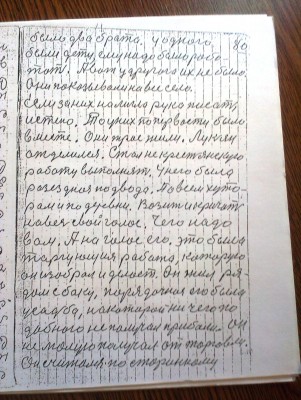 было два брата. у одного 80
были дети, ему надо было рабо-
тот. А вот у другого их не было.
Они показывали на все село.
Если за них начать руко писать,
истено. То у них по первости было
вместе. Они трое жили. Лукьян
отделился. Стал не крестьянскую
работу выполнять. У него была
разездная подвода. Повсем хуто-
рам и по деревни. Возит и кричать
на весь свой голос. Чего надо
вам. А на голос его, это была
таргующия работа, которую
он избрал и делает. Он жил ря-
дом с баки, порядочная его была
усадба, на которой ни чего по
добного не получал прибыли. Он
не малую получал от торговли.
Он считался по старинному